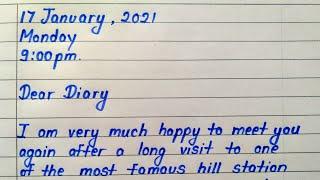 17 January, 2021
Monday
9:00pm.
Dear Diary
I am very much happy to meet you
again after a long visit to one
of the most famous hill station